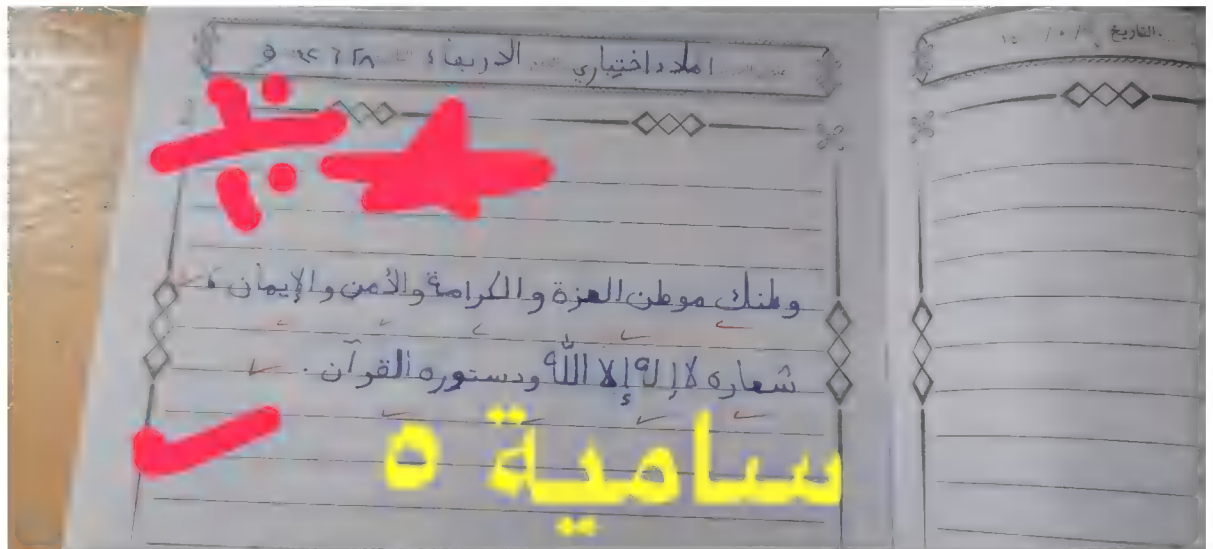 املاء اختياري الاربعاء
التاريخ
وطنك موطن العزة والكرامة والأمن والإيمان ،
شعاره لا إله إلا الله ودستوره القرآن .
سامية ٥